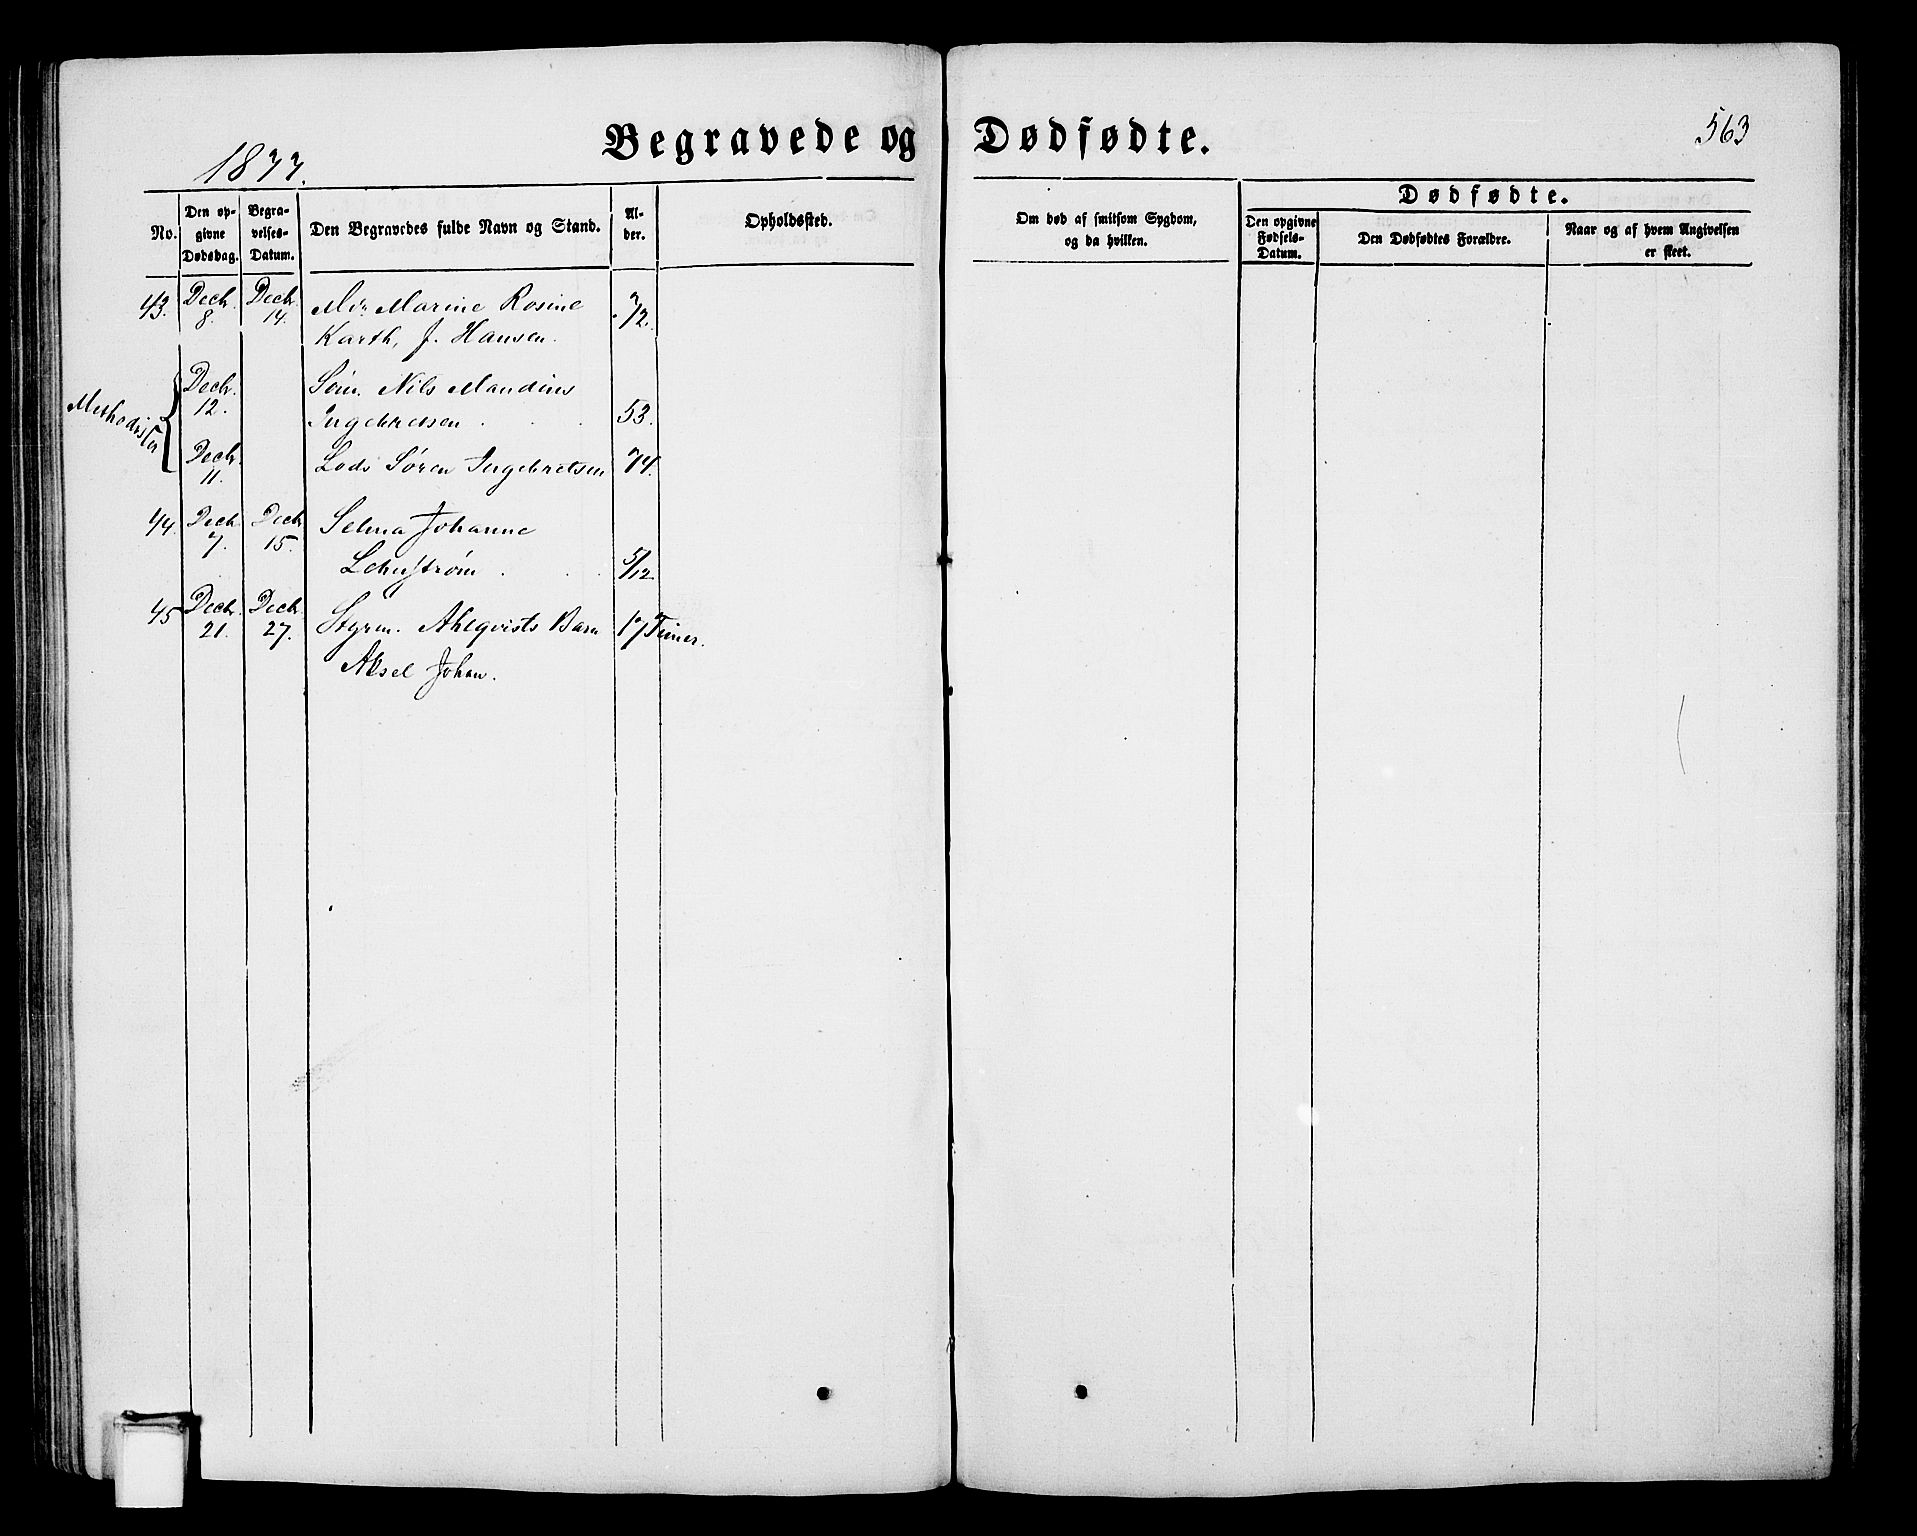 Begravede og Dødfødte.
563
1877.
No.
Den op-
givne
Dødsdag.
Begra-
velses-
Datum.
Den Begravedes fulde Navn og Stand.
Al-
der.
Opholdssted.
Om død af smitsom Sygdom,
og da hvilken.
Dødfødte.
Den opgivne
Fødsels-
Datum.
Den Dødfødtes Forældre.
Naar og af hvem Angivelsen
er skeet.
43. Decbr. 8. Decbr. 14. Marine Rosine
Karth, f. Hansen. 72.
Methodister
Decbr. 12. Søm. Nils Maudius
Ingebretsen 53.
Decbr. 11. Lods Søren Ingebretsen 74.
44. Decbr. 7. Decbr. 15. Selma Johanne
5/12
45 Decbr. 21. Decbr. 27. Styrm. Ahlqvists Barn 17 Timer.
Aksel Johan.